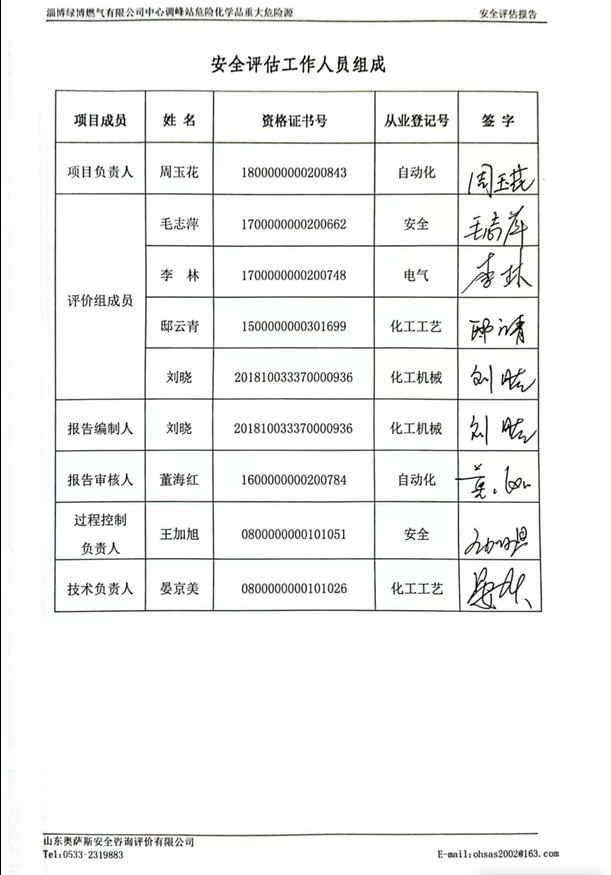 淄博绿博燃气有限公司中心调峰站危险化学品重大危险源 安全评估报告
安全评估工作人员组成
项目成员 姓 名 资格证书号 从业登记号 签 字
项目负责人 周玉花 1800000000200843 自动化 周玉花
评价组成员
毛志萍 1700000000200662 安全
李 林 1700000000200748 电气 李林
邸云青 1500000000301699 化工工艺
刘晓 201810033370000936 化工机械 刘晓
报告编制人 刘晓 201810033370000936 化工机械 刘晓
报告审核人 董海红 1600000000200784 自动化
过程控制
负责人 王加旭 0800000000101051 安全
技术负责人 晏京美 0800000000101026 化工工艺
山东奥萨斯安全咨询评价有限公司
Tel:0533-2319883 E-mail:ohsas2002@163.com